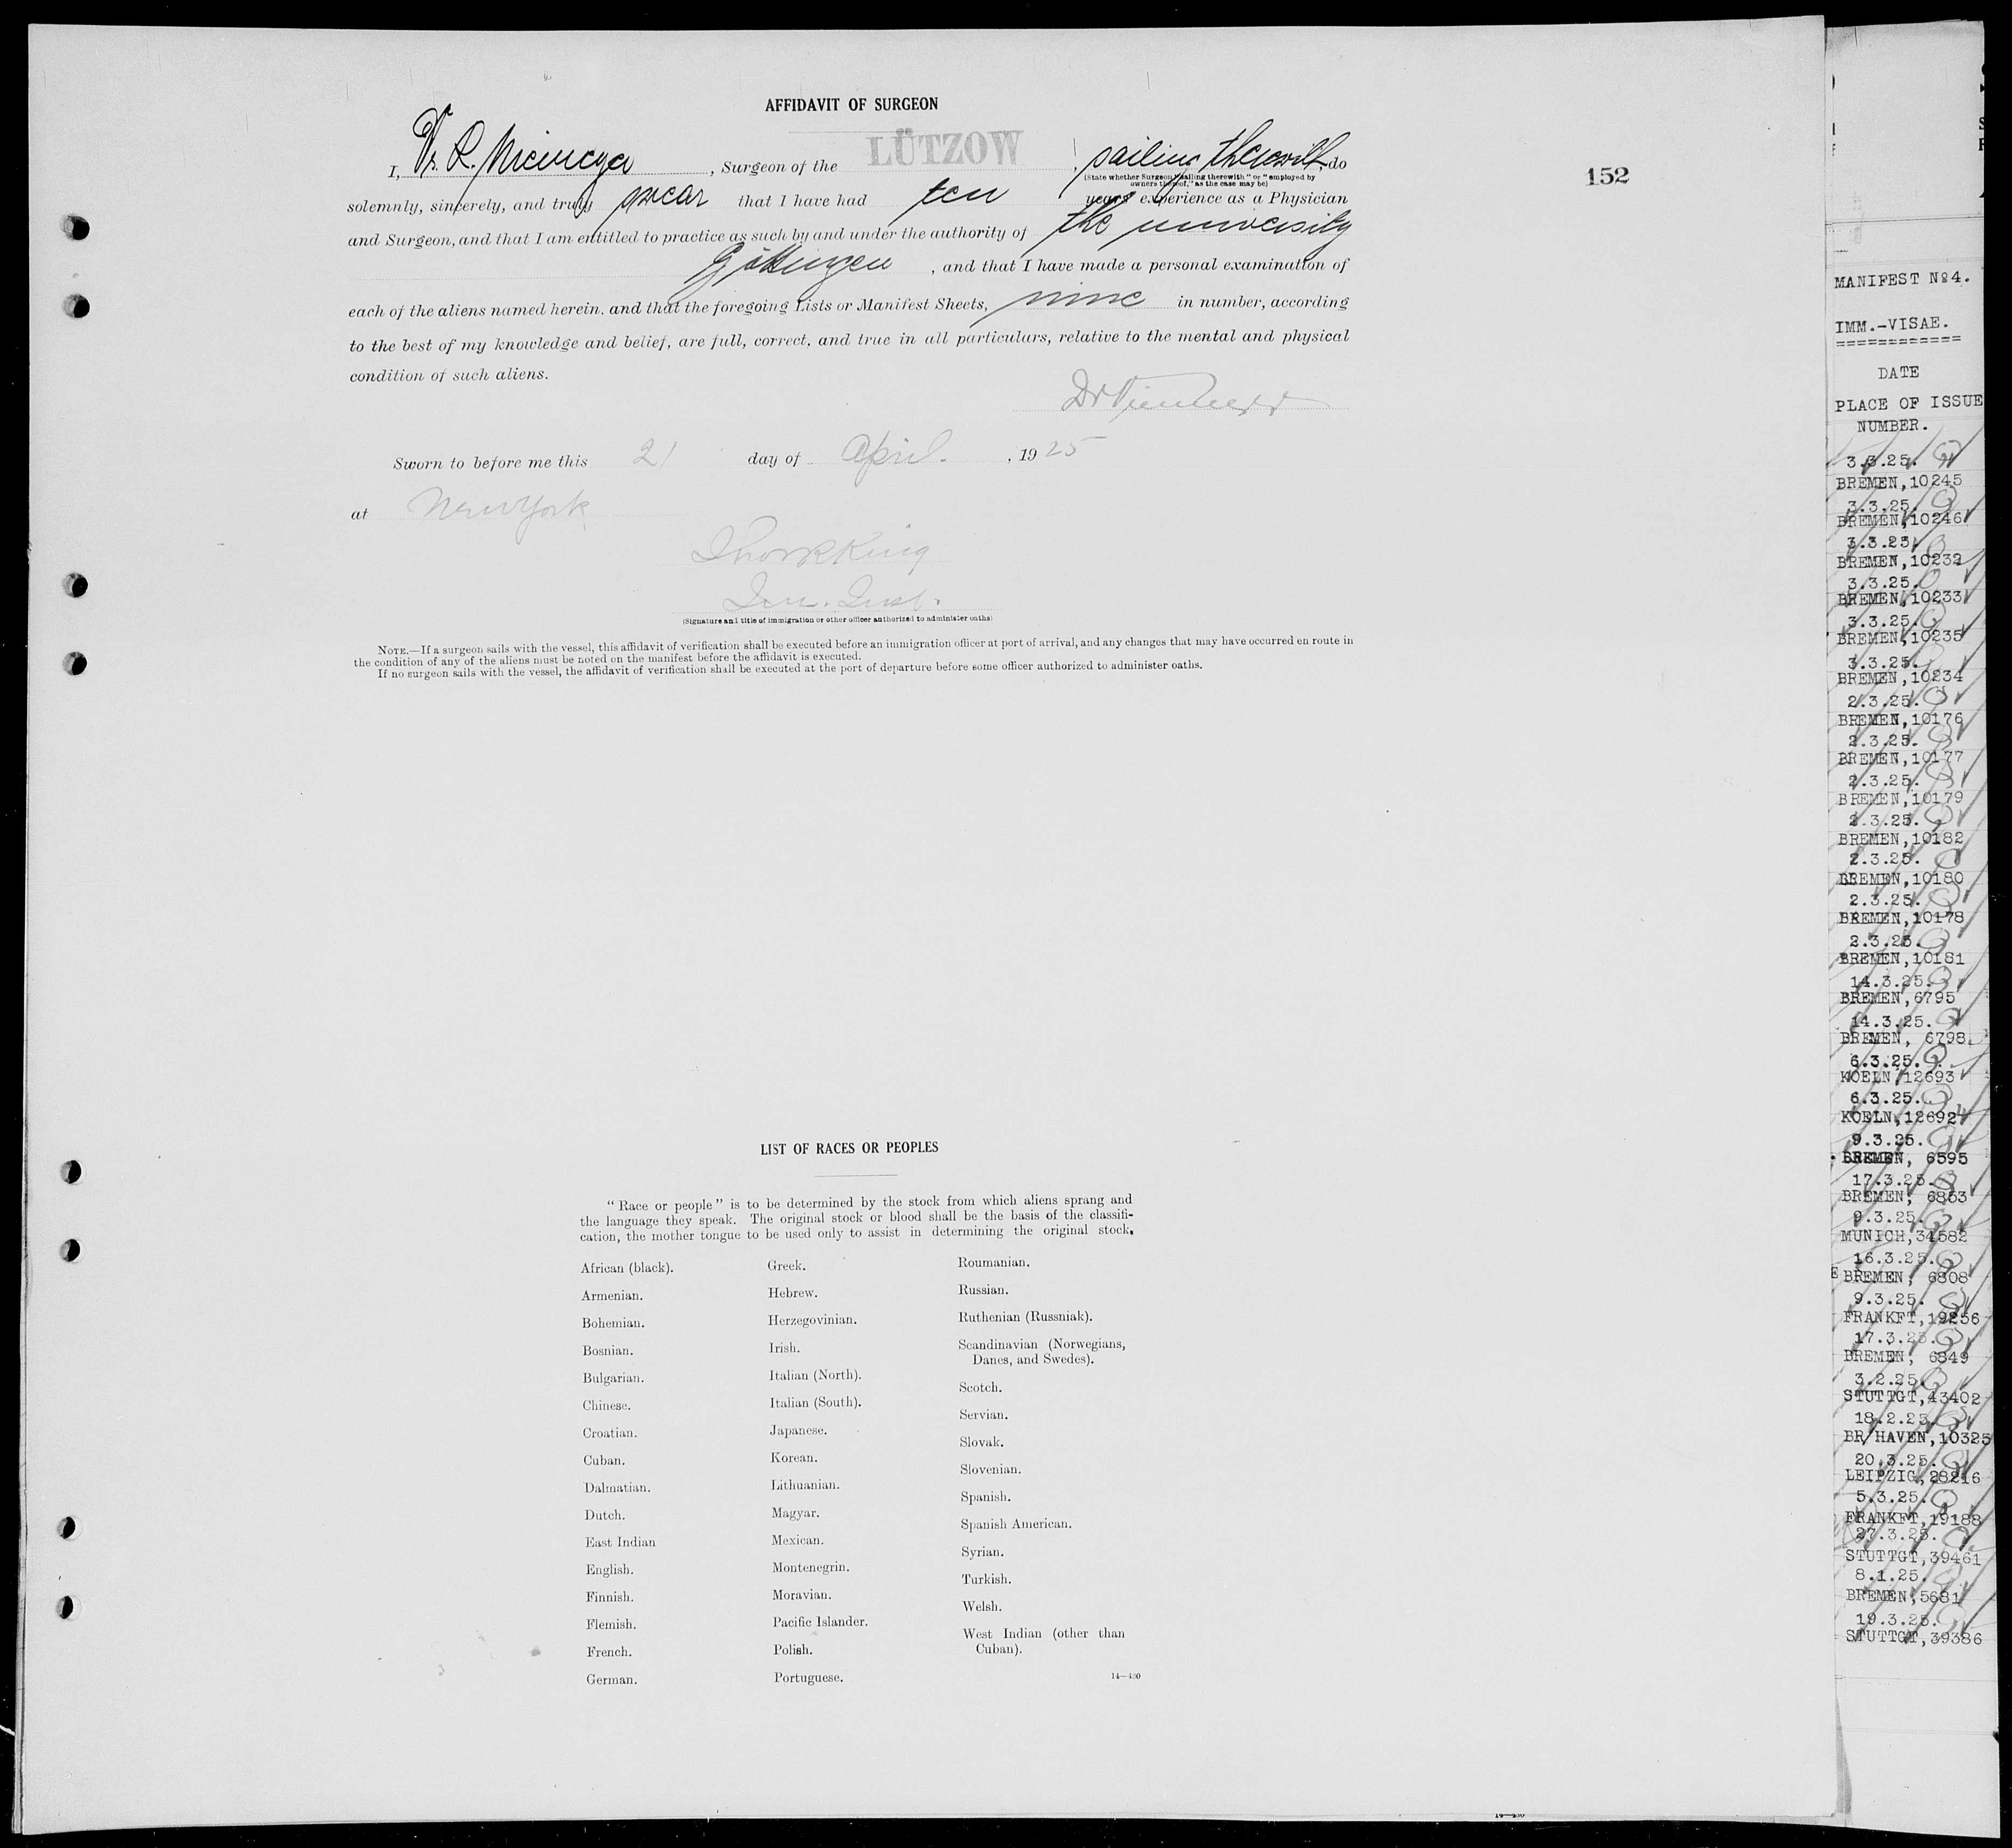 AFFIDAVIT OF SURGEON
I, Dr. R. , Surgeon of the LÜTZOW , sailing therewith, do
(State whether Surgeon "sailing therewith" or "employed by
owners thereof," as the case may be)
solemnly, sincerely, and truly swear that I have had ten years' experience as a Physician
and Surgeon, and that I am entitled to practice as such by and under the authority of the university
Göttingen , and that I have made a personal examination of
each of the aliens named herein, and that the foregoing Lists or Manifest Sheets, nine in number, according
to the best of my knowledge and belief, are full, correct, and true in all particulars, relative to the mental and physical
condition of such aliens.
Sworn to before me this 21 day of April. , 1925
at New York
King
Imm. Insp.
(Signature and title of immigration or other officer authorized to administer oaths)
NOTE.—If a surgeon sails with the vessel, this affidavit of verification shall be executed before an immigration officer at port of arrival, and any changes that may have occurred en route in
the condition of any of the aliens must be noted on the manifest before the affidavit is executed.
If no surgeon sails with the vessel, the affidavit of verification shall be executed at the port of departure before some officer authorized to administer oaths.
152
LIST OF RACES OR PEOPLES
"Race or people" is to be determined by the stock from which aliens sprang and
the language they speak. The original stock or blood shall be the basis of the classifi-
cation, the mother tongue to be used only to assist in determining the original stock.
African (black).
Armenian.
Bohemian.
Bosnian.
Bulgarian.
Chinese.
Croatian.
Cuban.
Dalmatian.
Dutch.
East Indian
English.
Finnish.
Flemish.
French.
German.
Greek.
Hebrew.
Herzegovinian.
Irish.
Italian (North).
Italian (South).
Japanese.
Korean.
Lithuanian.
Magyar.
Mexican.
Montenegrin.
Moravian.
Pacific Islander.
Polish.
Portuguese.
Roumanian.
Russian.
Ruthenian (Russniak).
Scandinavian (Norwegians,
Danes, and Swedes).
Scotch.
Servian.
Slovak.
Slovenian.
Spanish.
Spanish American.
Syrian.
Turkish.
Welsh.
West Indian (other than
Cuban).
14—430
MANIFEST Nº4.
IMM.-VISAE.
============
DATE
PLACE OF ISSUE
NUMBER.
3.3.25.
BREMEN,10245
3.3.25.
BREMEN,10246
3.3.25.
BREMEN,10232
3.3.25.
BREMEN,10233
3.3.25.
BREMEN,10235
3.3.25.
BREMEN,10234
2.3.25.
BREMEN,10176
2.3.25.
BREMEN,10177
2.3.25.
BREMEN,10179
2.3.25.
BREMEN,10182
2.3.25.
BREMEN,10180
2.3.25.
BREMEN,10178
2.3.25.
BREMEN,10181
14.3.25.
BREMEN,6795
14.3.25.
BREMEN, 6798
6.3.25.
KOELN,12693
6.3.25.
KOELN,12692
9.3.25.
BREMEN, 6595
17.3.25.
BREMEN, 6853
9.3.25.
MUNICH,34582
16.3.25.
BREMEN, 6808
9.3.25.
FRANKFT,19256
17.3.25.
BREMEN, 6849
3.2.25.
STUTTGT,43402
18.2.25.
BR/HAVEN,10325
20.3.25.
LEIPZIG,28216
5.3.25.
FRANKFT,19188
27.3.25.
STUTTGT,39461
8.1.25.
BREMEN,5681
19.3.25.
STUTTGT,39386
14—430